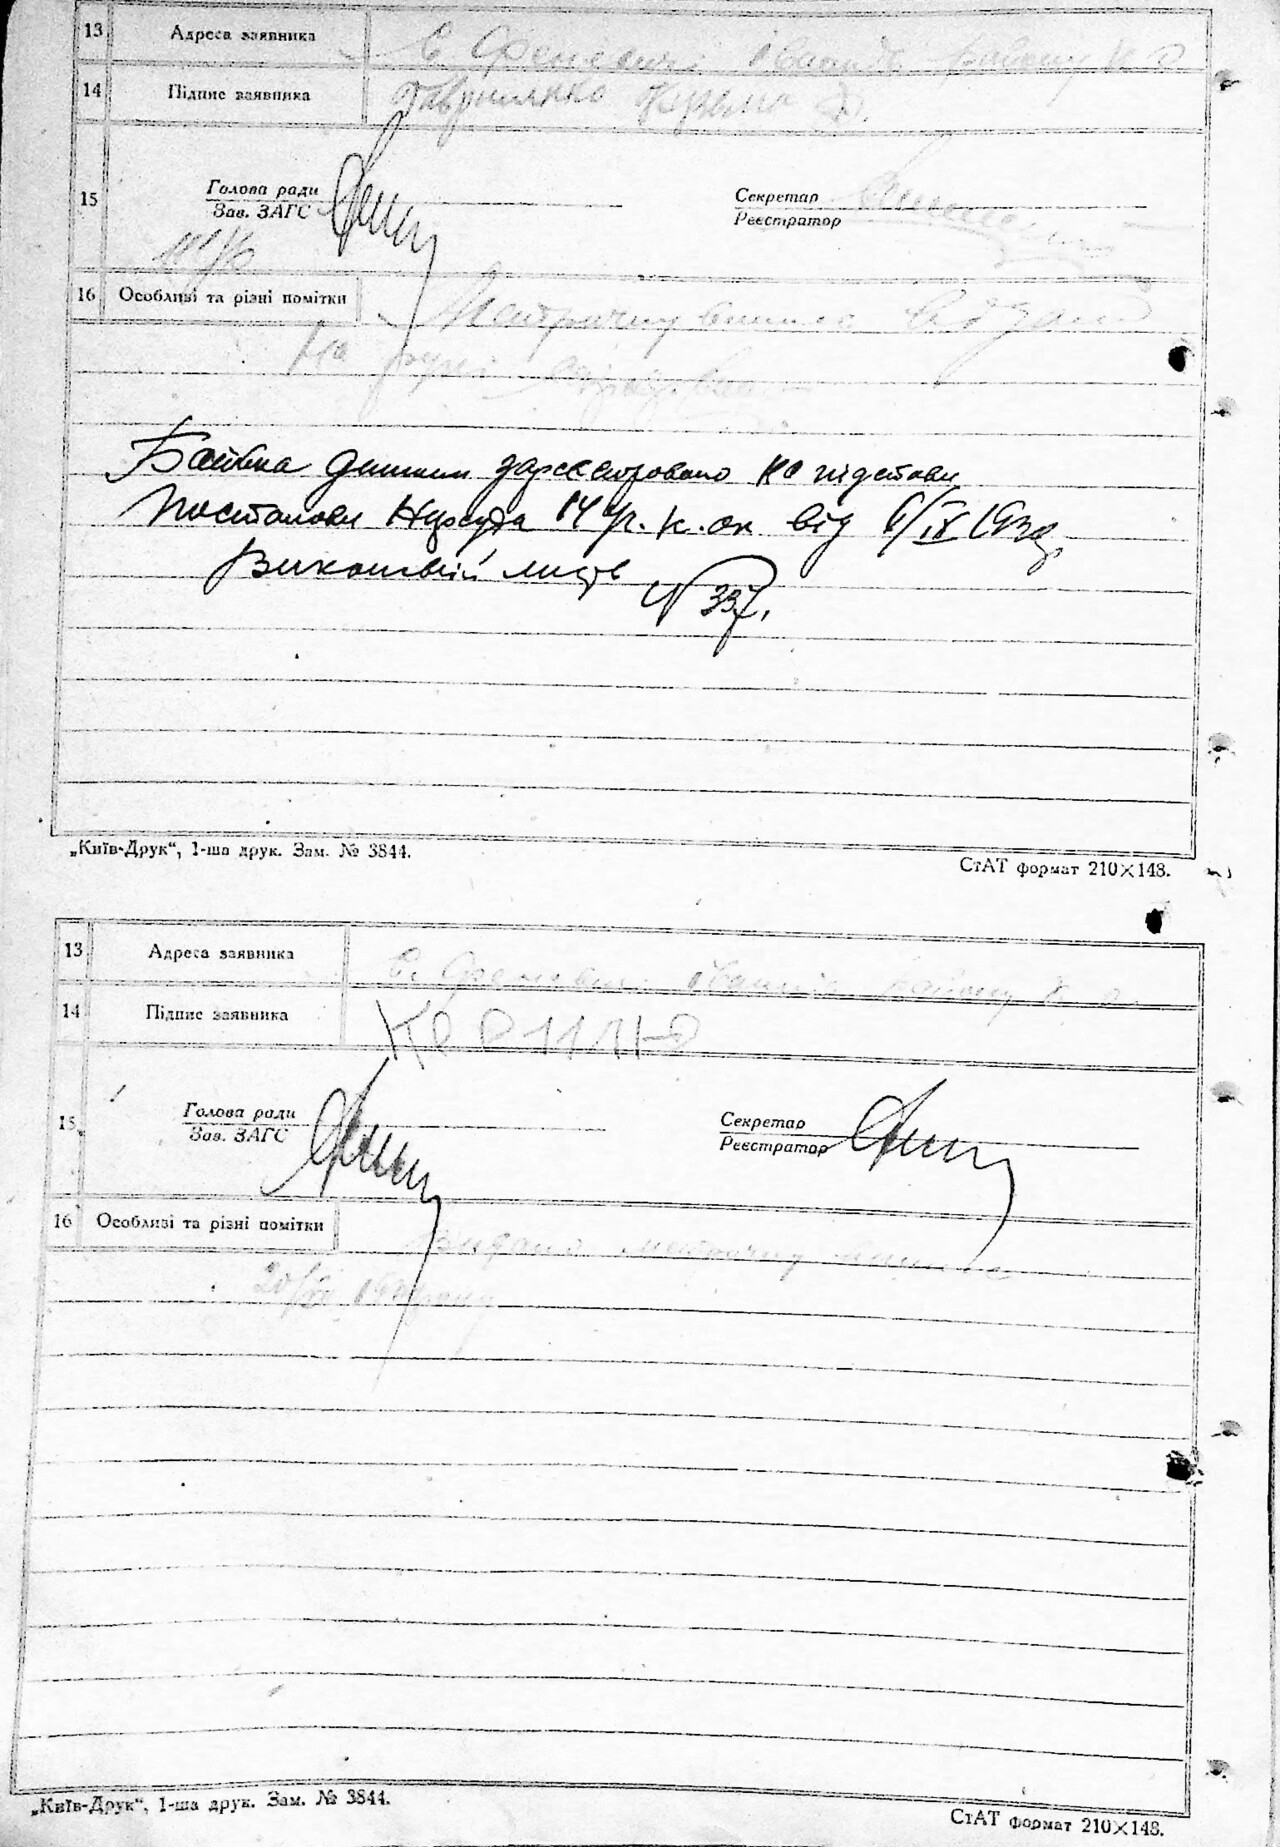 13 Адреса заявника с. Феневичі Іванків. району К. О.
14 Підпис заявника Гавриленко Кузьма
15 Голова ради
Зав. ЗАГС
Секретар
Реєстратор
16 Особливі та різні помітки Метричну виписку видано
На руки
Батька дитини зареєстровано на підставі
Постанови Нарсуда 14 д. К. ок. від 6/IX 193
Виконавчий лист
№ 337.
„Київ-Друк“, 1-ша друк. Зам. № 3844.
СтАТ формат 210×148.
13 Адреса заявника с. Феневичі Іванків. району К. о.
14 Підпис заявника
15 Голова ради
Зав. ЗАГС
Секретар
Реєстратор
16 Особливі та різні помітки Видано метричну виписку
„Київ-Друк“, 1-ша друк. Зам. № 3844.
СтАТ формат 210×148.